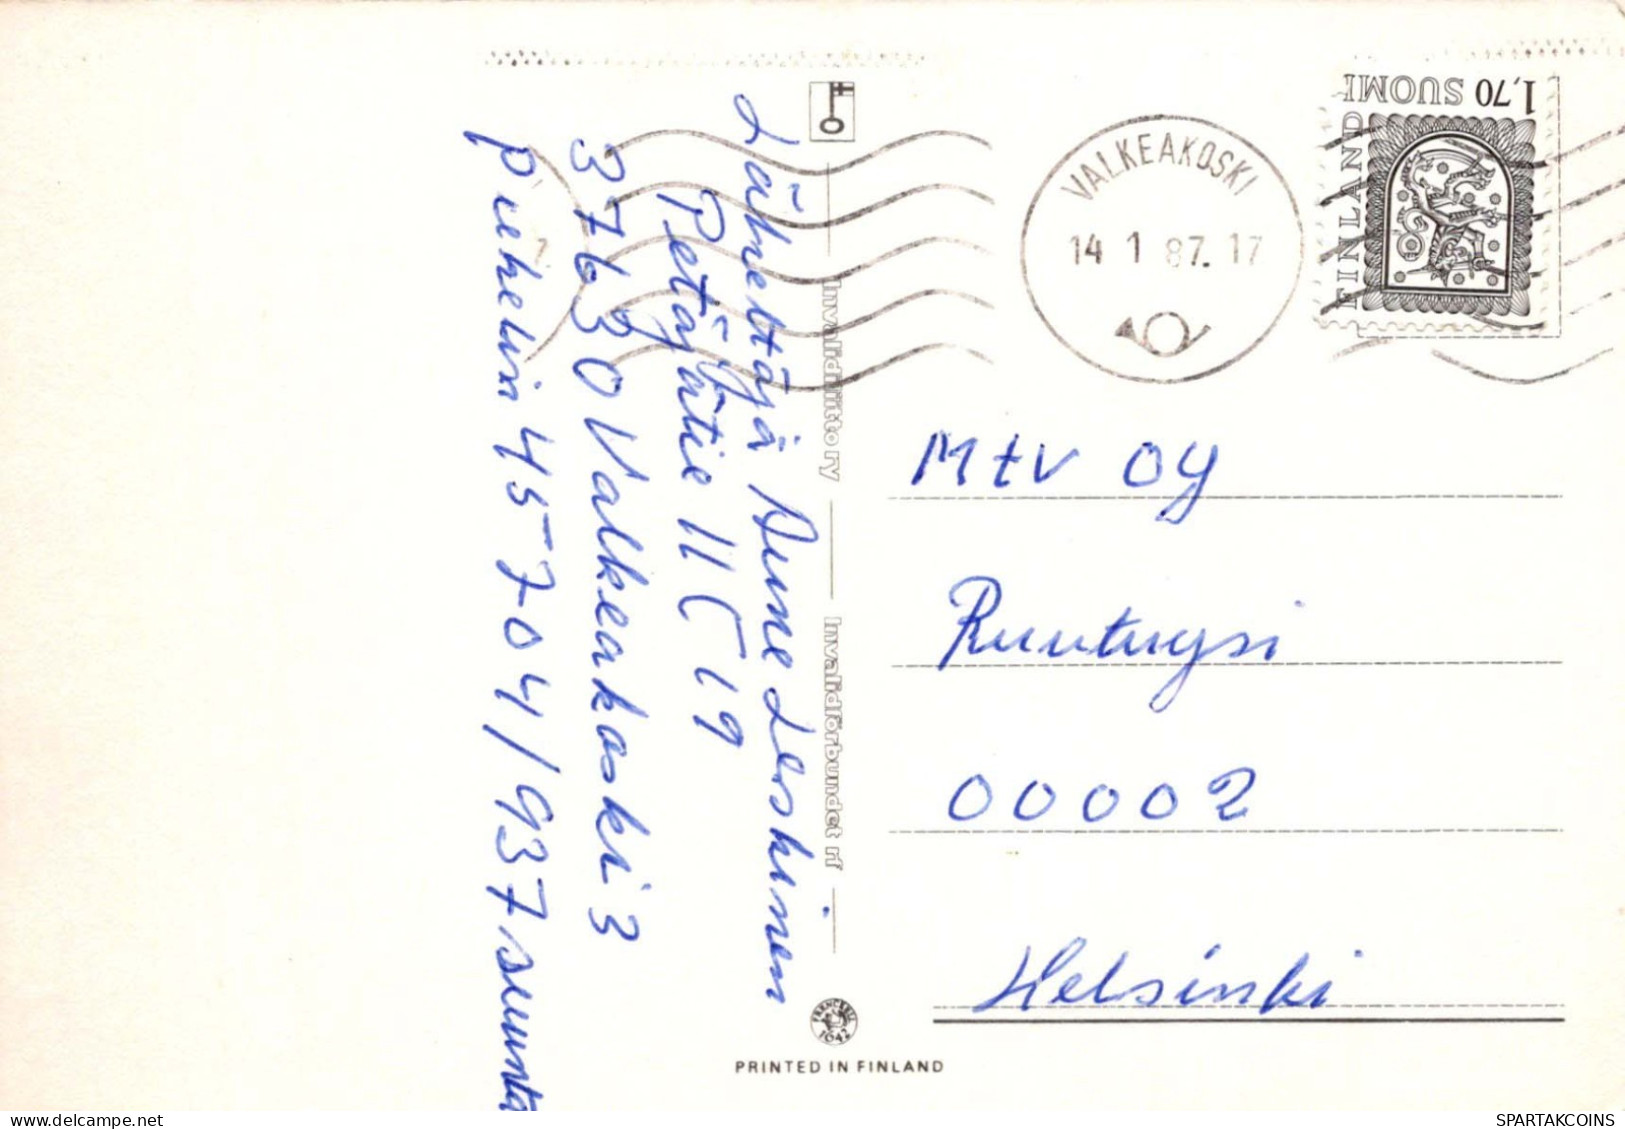 Lähettäjä Aune Leskinen
Petäjätie 11 C 19
37630 Valkeakoski 3
puhelin 45704/937 suunta
Invalidiliitto ry
Invalidförbundet rf
1942
PRINTED IN FINLAND
VALKEAKOSKI
14 1 87. 17
1,70 SUOMI
FINLAND
Mtv OY
Ruutuysi
00002
Helsinki
www.delcampe.net
SPARTAKCOINS